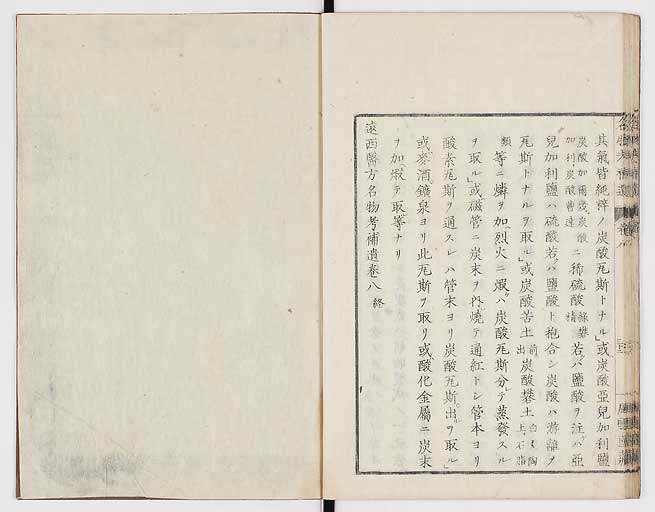 其氣皆純粹ノ炭酸瓦斯トナル」或炭酸亞兒加利鹽
炭酸加爾幾炭酸加利炭酸曹達ニ稀硫酸綠礬精若クハ鹽酸ヲ注ハ亞
兒加利鹽ハ硫酸若クハ鹽酸ト抱合シ炭酸ハ游離メ
瓦斯トナルヲ取ル」或炭酸苦土前出炭酸礬土白及陶土上石脂
類等ニ燐ヲ加烈火ニ煆ハ炭酸瓦斯分テ蒸發スル
ヲ取ル」或磁管ニ炭末ヲ內燒テ通紅トシ管本ヨリ
酸素瓦斯ヲ通スレハ管末ヨリ炭酸瓦斯出ヲ取ル」
或麥酒鑛泉ヨリ此瓦斯ヲ取リ或酸化金屬ニ炭末
ヲ加煆テ取等ナリ
遠西醫方名物考補遺卷八 終